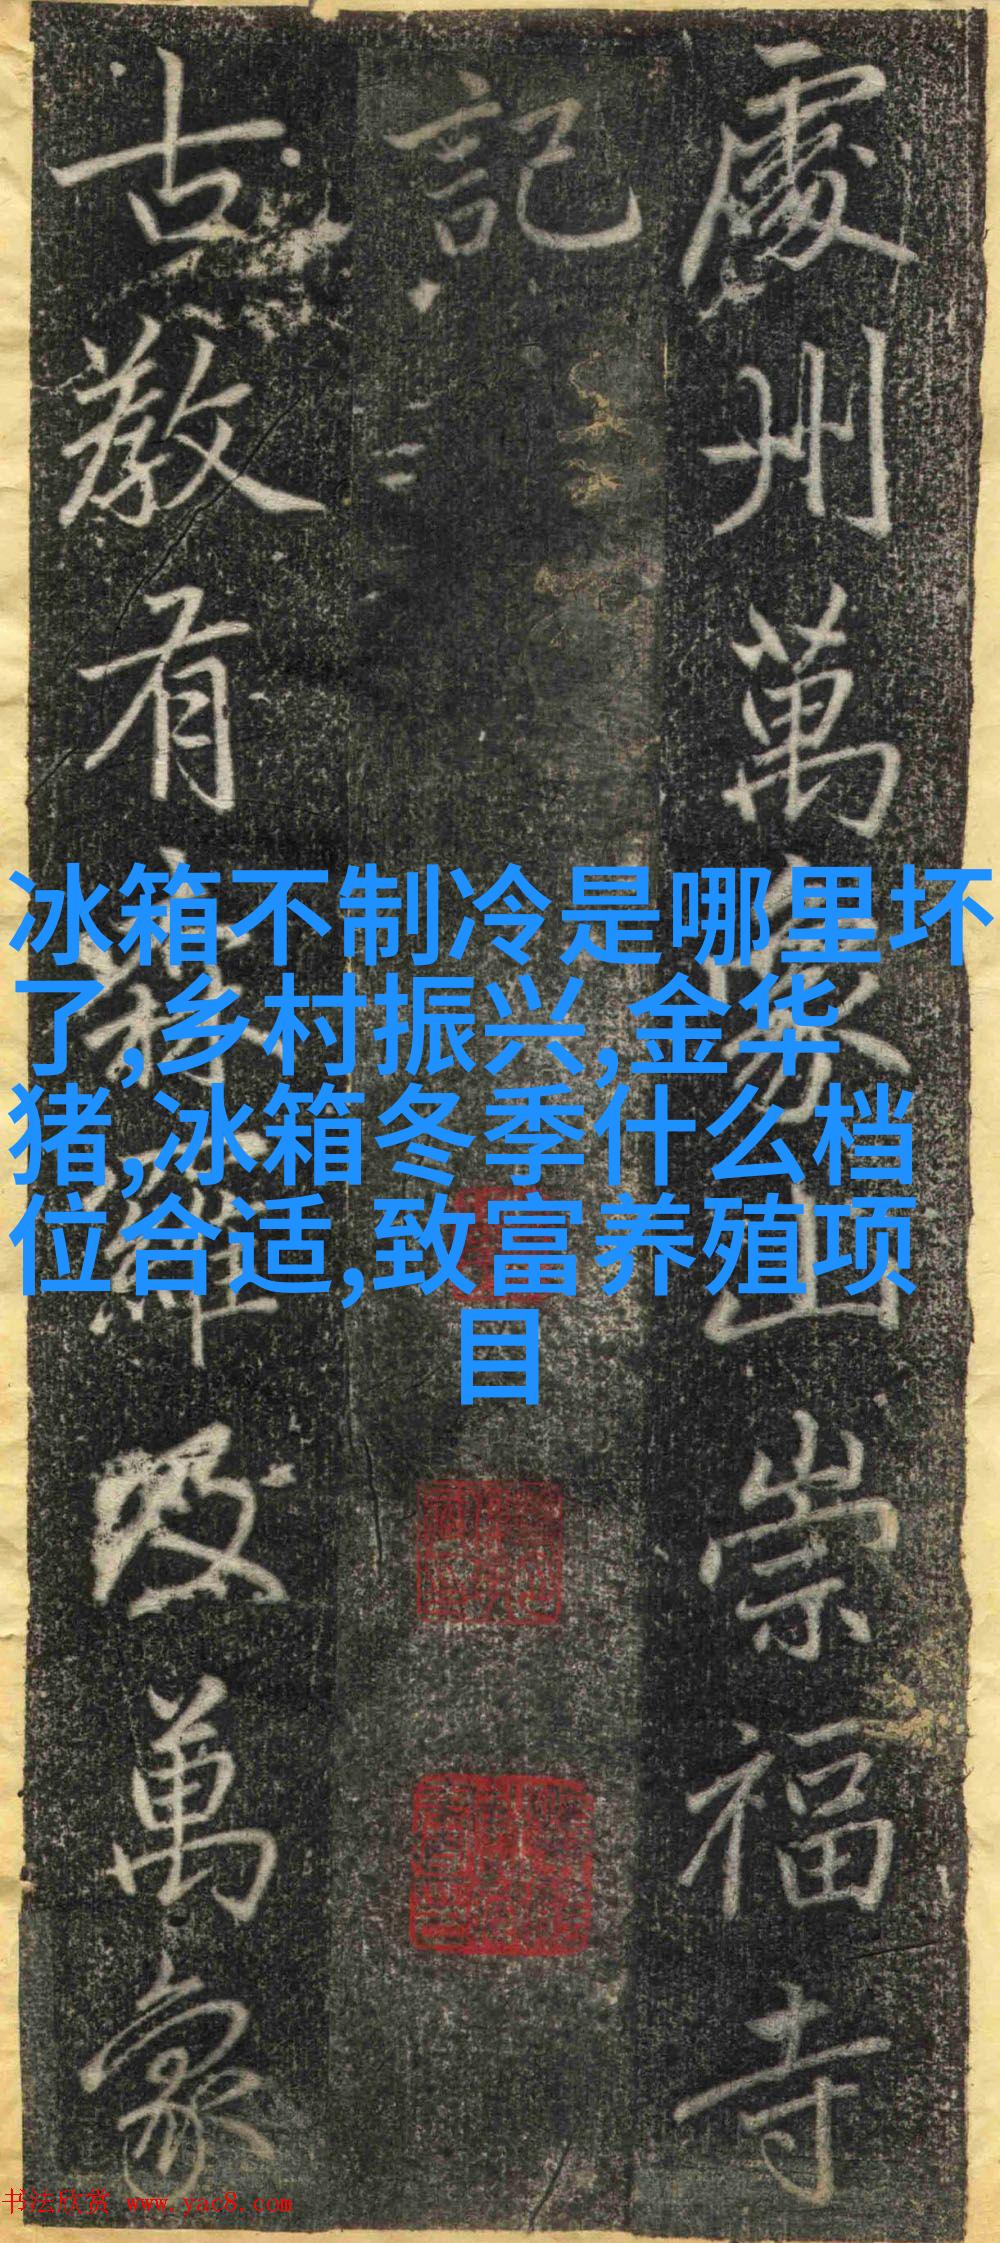 處州萬象山崇福寺
記
古教有森羅及萬象
冰箱不制冷是哪里坏
了,乡村振兴,金华
猪,冰箱冬季什么档
位合适,致富养殖项
目
书法欣赏 www.yac8.com